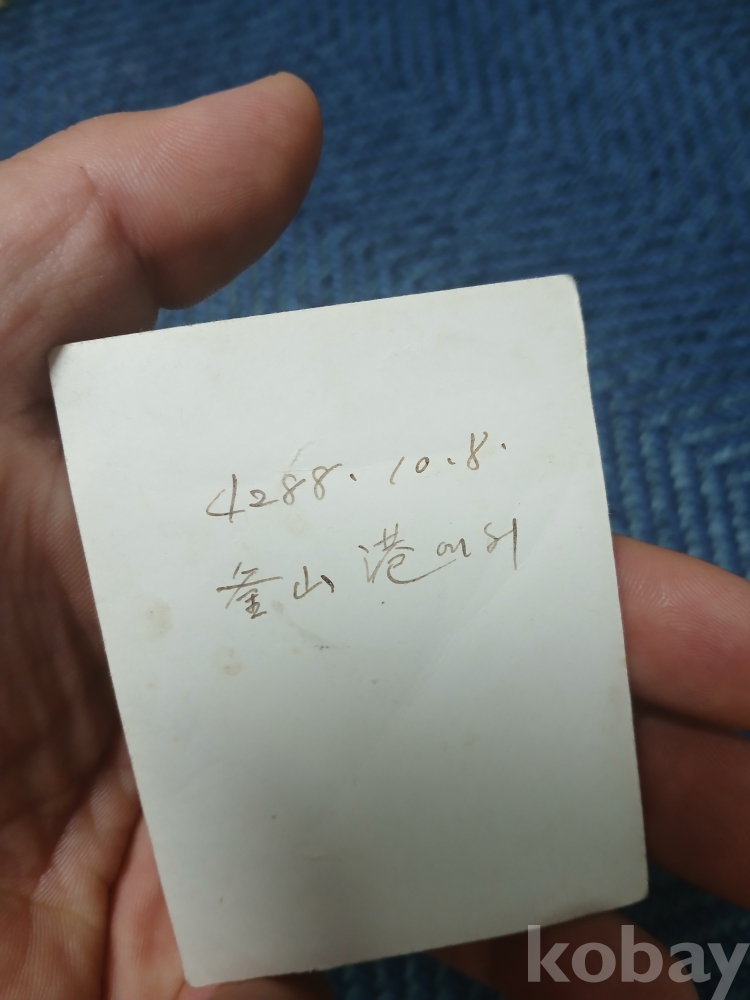 4288. 10.8.
釜山 港에서
kobay